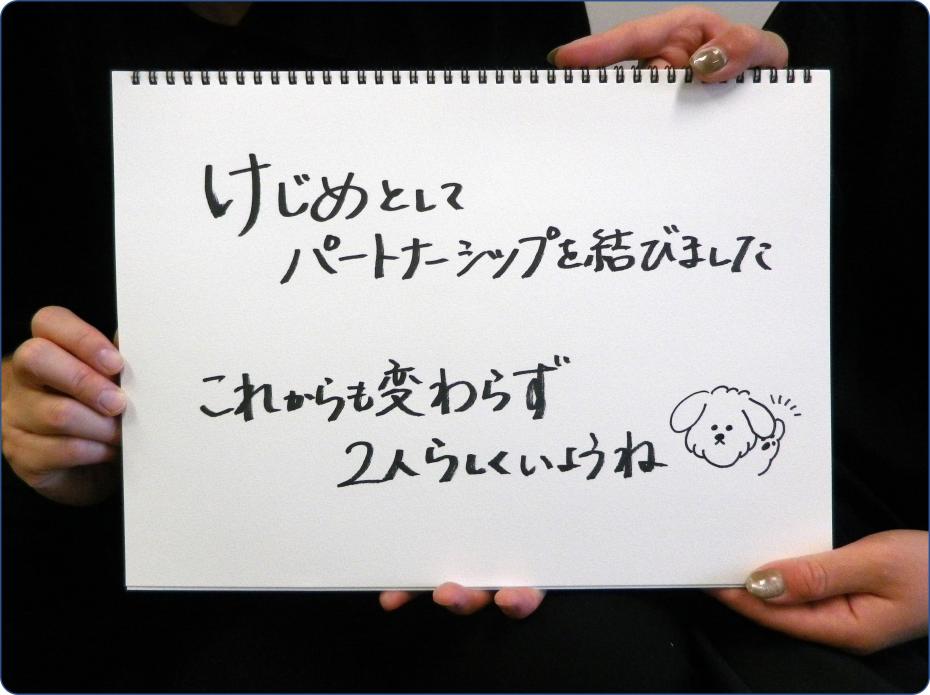 けじめとして
パートナーシップを結びました
これからも変わらず
2人らしくいようね